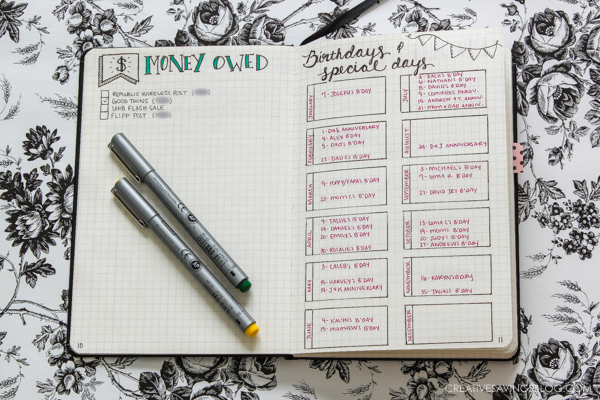 $ MONEY OWED
REPUBLIC WIRELESS POST
GOOD THINX
UHB FLASH SALE
FLIPP POST
10
Birthdays &
special days
JANUARY
7- JOSEPH'S B'DAY
FEBRUARY
1- D&E ANNIVERSARY
4- ALEX B'DAY
5- DAD'S B'DAY
27- DAD C'S B'DAY
MARCH
9- POPPY/PAPA'S B'DAY
25- MOM C'S B'DAY
APRIL
9- CASSIE'S B'DAY
14- DANIEL'S B'DAY
20- EMILY'S B'DAY
30- ROSALIE'S B'DAY
MAY
3- CALEB'S B'DAY
15- HARVEY'S B'DAY
19- J&K ANNIVERSARY
JUNE
4- KALYN'S B'DAY
15- MATTHEW'S B'DAY
JULY
ZACH'S B'DAY
NATHAN'S B'DAY
DAVID'S B'DAY
ANNIV.
ANDREW & T. ANNIV.
MOM & DAD ANNIV.
AUGUST
24- D&J ANNIVERSARY
SEPTEMBER
3- MICHAEL'S B'DAY
7- GMA H. B'DAY
27- DAVID JR'S B'DAY
OCTOBER
13- GMA C'S B'DAY
19- MOM'S B'DAY
20- JUDY'S B'DAY
27- ANDREW'S B'DAY
NOVEMBER
16- KARYN'S B'DAY
30- B'DAY
DECEMBER
11
CREATIVESAVINGSBLOG.COM